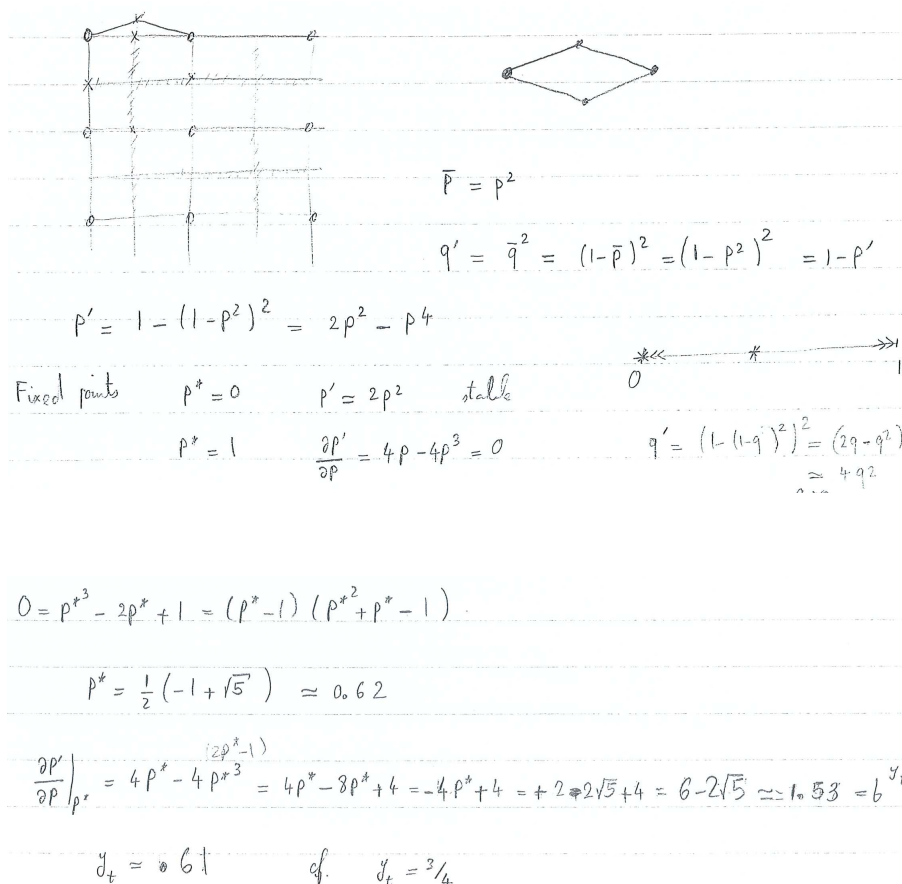 p̄ = p²
q' = q̄² = (1-p̄)² = (1-p²)² = 1-p'
p' = 1 - (1-p²)² = 2p² - p⁴
0 1
Fixed points p* = 0 p' ≃ 2p² stable
p* = 1 ∂p'/∂p = 4p - 4p³ = 0 q' = (1-(1-q)²)² = (2q-q²)
≃ 4q²
0 = p*³ - 2p* + 1 = (p*-1) (p*² + p* - 1).
p* = ½(-1+√5) ≃ 0.62
(2p*-1)
∂p'/∂p|p* = 4p* - 4p*³ = 4p* - 8p* + 4 = -4p* + 4 = +2-2√5+4 = 6-2√5 ≃ 1.53 = b^y
y_t ≃ .61 cf. y_t = 3/4